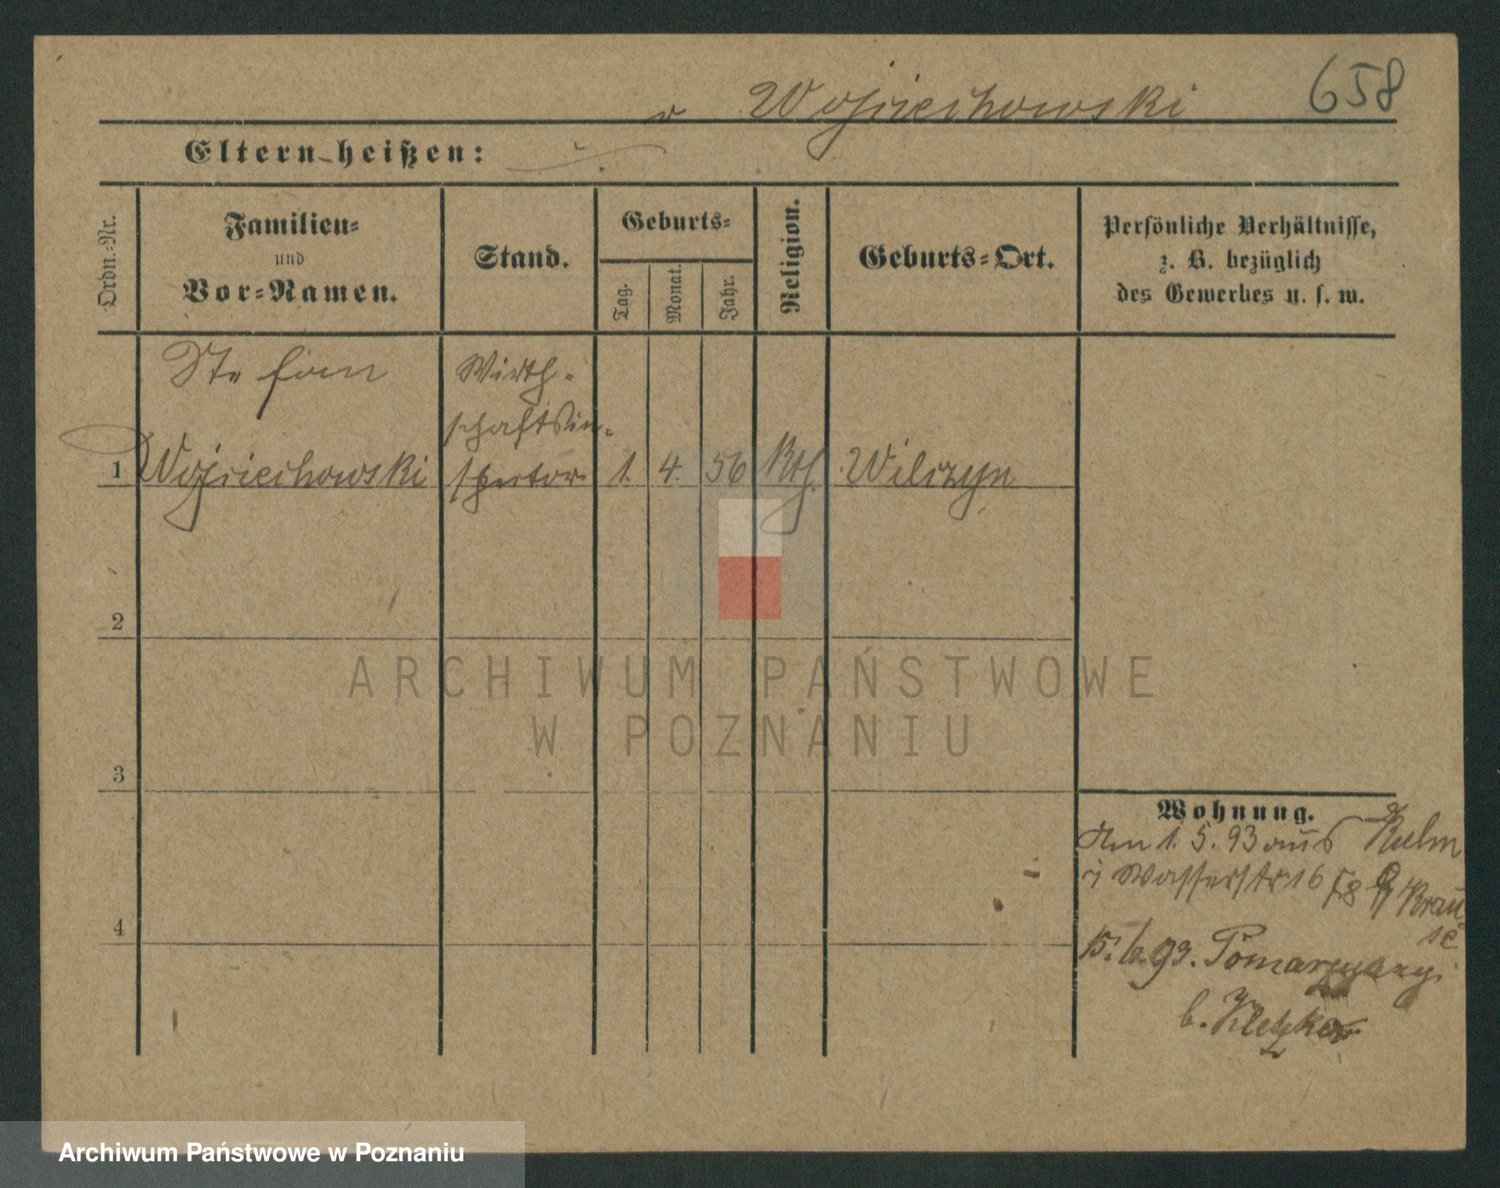 Wojciechowski 658
Eltern heißen:
Ordn.-Nr.
Familien-
und
Vor-Namen.
Stand.
Geburts-
Tag.
Monat.
Jahr.
Religion.
Geburts-Ort.
Persönliche Verhältnisse,
z. B. bezüglich
des Gewerbes u. s. w.
Stefan
Wirth-
schaftsin-
1 Wojciechowski spector 1. 4. 56 Kth. Wilczyn
2
3
4
Wohnung.
Am 1. 5. 93 aus Kulm
Wasserstr 16 b/ Krau-
se
15. 93.
b. Kletzko
ARCHIWUM PAŃSTWOWE
W POZNANIU
Archiwum Państwowe w Poznaniu